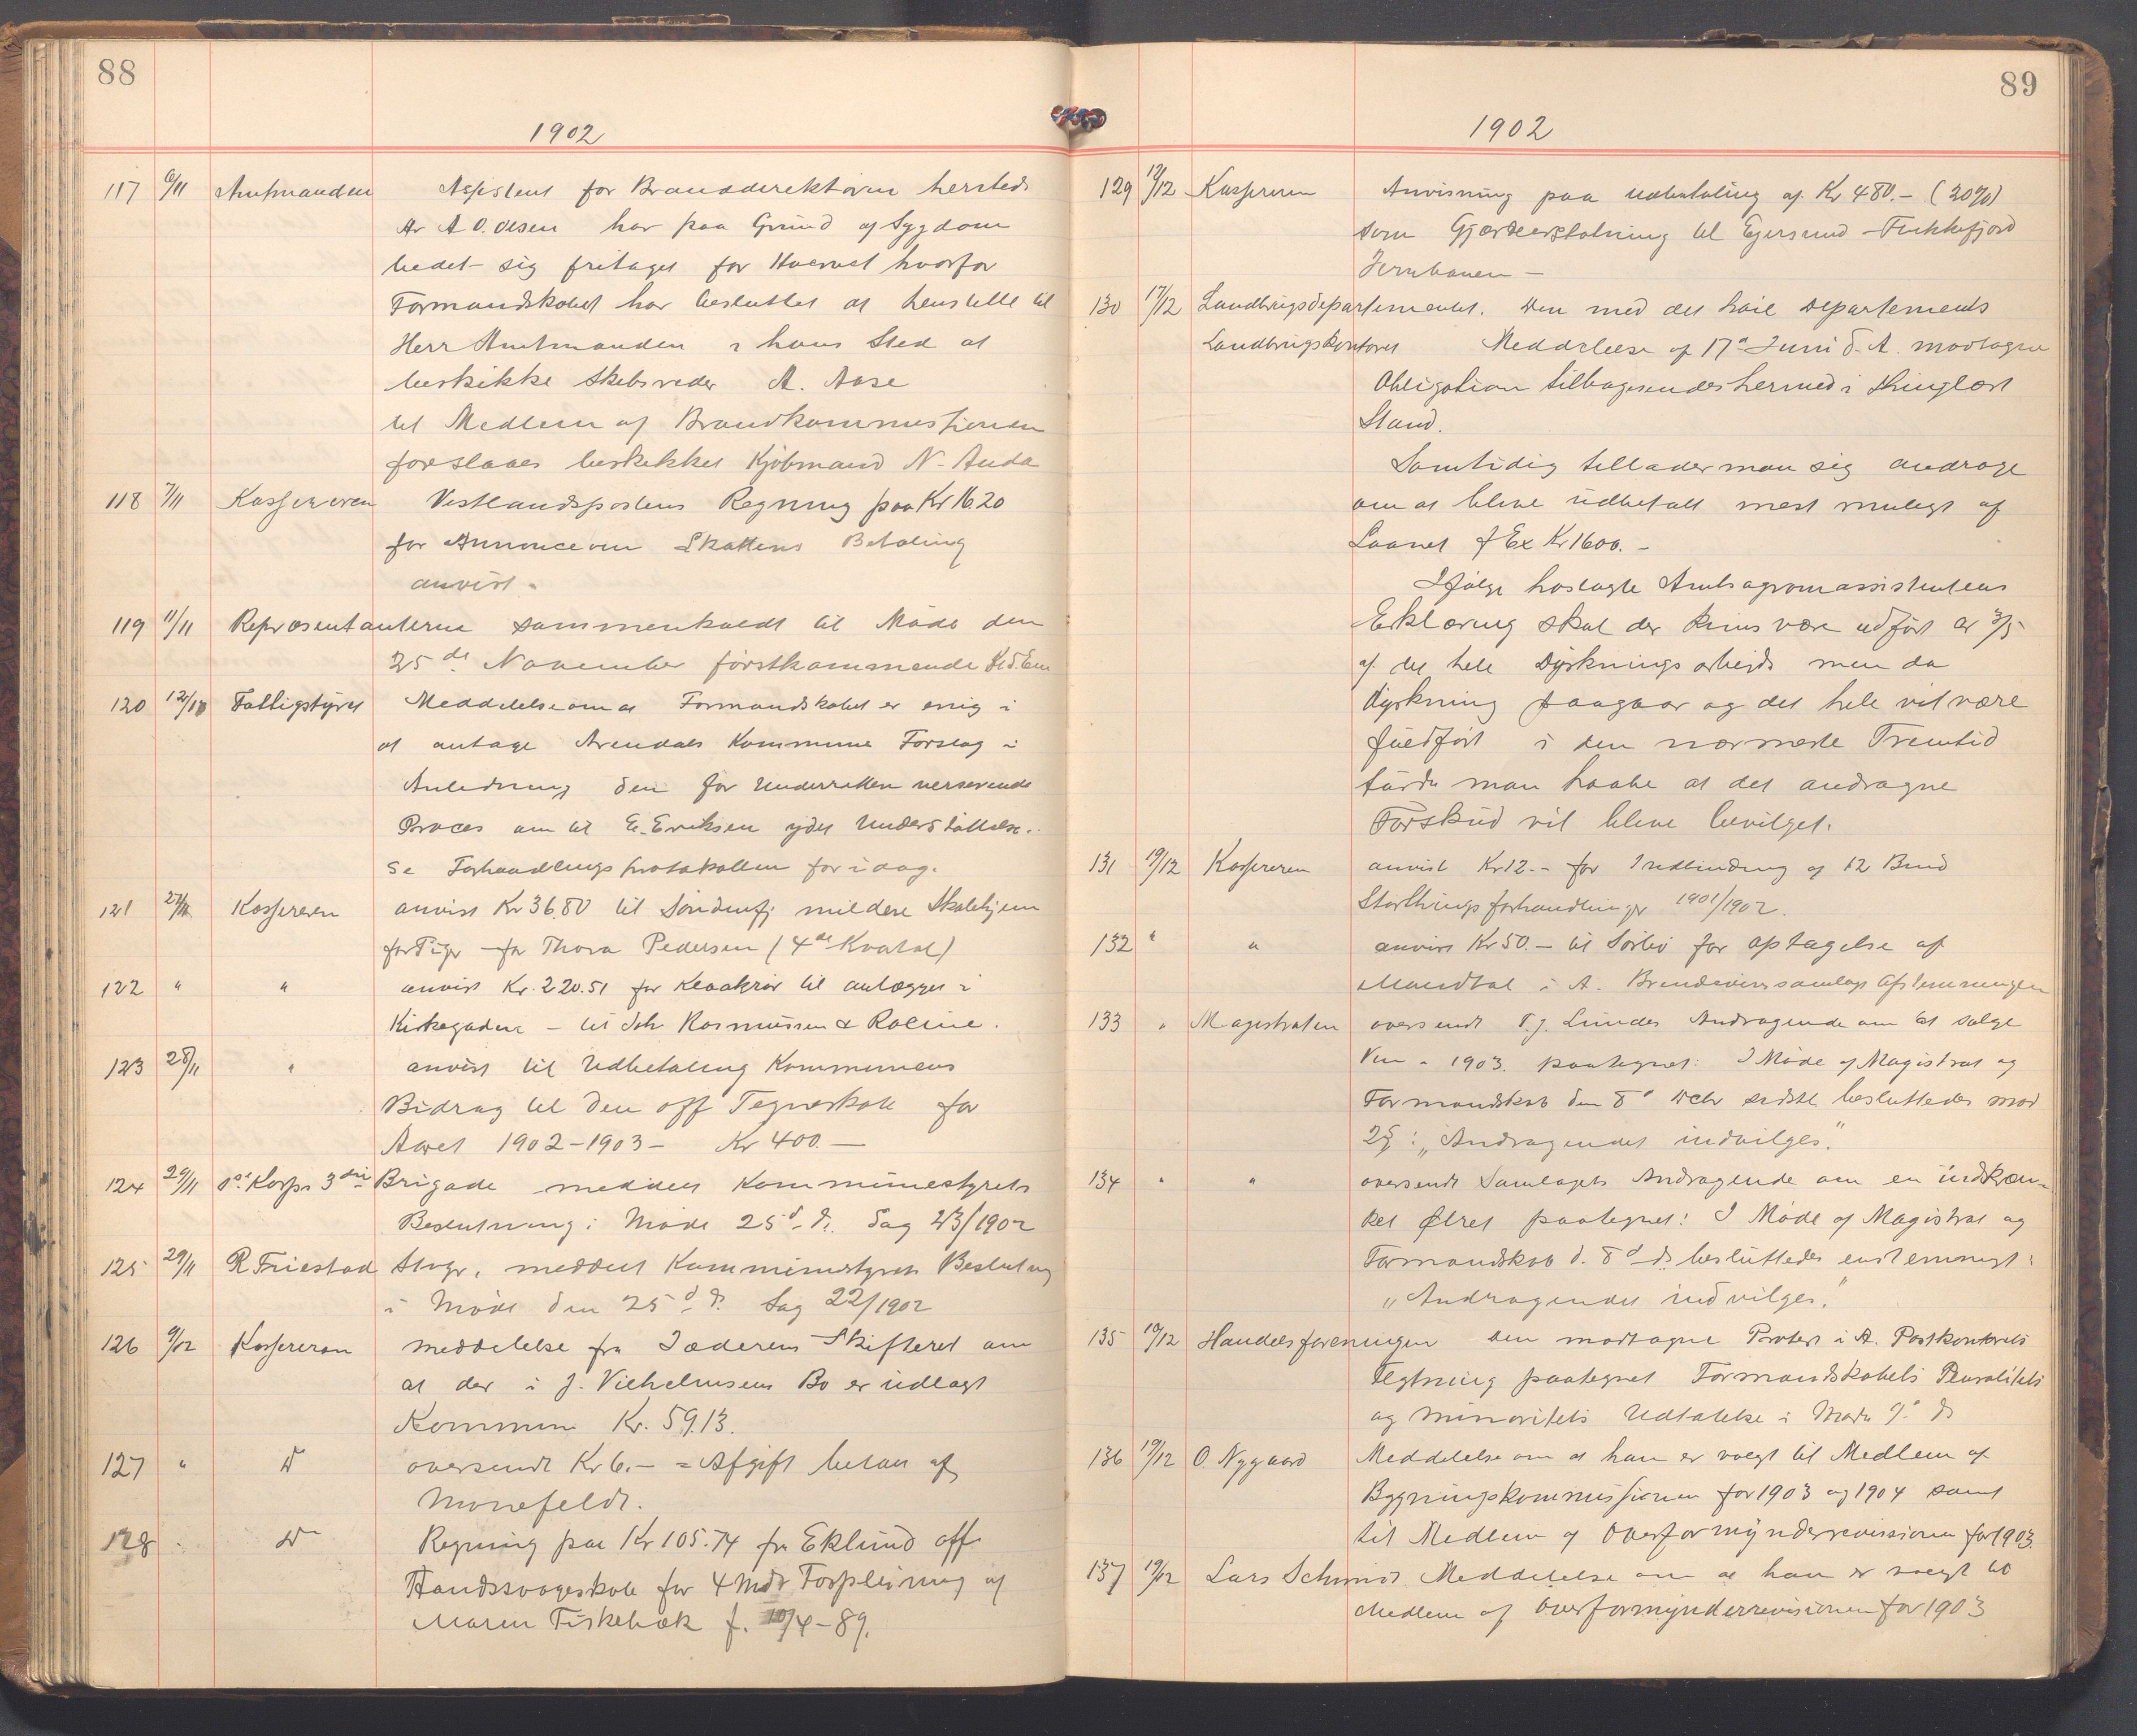 88
1902
117 6/11 Amtmanden Assistent for Branddirektøren hersteds
Hr A O. Olsen har paa Grund af Sygdom
bedet sig fritaget for Hvervet hvorfor
Formandskabet har besluttet at henstille til
Herr Amtmanden i hans Sted at
beskikke Skibsreder A. Aase
til Medlem af Brandkommissionen
foreslaaes beskikket Kjøbmand N. Anda
118 7/11 Kassereren Vestlandspostens Regning paa Kr 16.20
for Annonce om Skattens Betaling
anvist.
119 11/11 Repræsentanterne sammenkaldt til Møde den
25de November førstkommende Kl 5. Em
120 12/11 Fattigstyret Meddelelse om at Formandskabet er enig i
at antage Arendals Kommune Forslag i
Anledning den for Underretten verserende
Proces om til E. Eriksen ydet Understøttelse.
Se Forhandlings protokollen for idag.
121 27/11 Kassereren anvist Kr 36.80 til Søndenfj mildere Skolehjem
for Piger for Thora Pedersen (4de Kvartal)
122 " " anvist Kr. 220.51 for Kloakrør til anlægget i
Kirkegaden - til Joh Rasmussen & Racine.
123 28/11 " anvist til Udbetaling Kommunens
Bidrag til den off Tegneskole for
Aaret 1902-1903 - Kr 400.-
124 29/11 Korps 3die Brigade meddelt Kommunestyrets
Beslutning i Møde 25d. ds. Sag 23/1902
125 29/11 R Friestad Stvgr. meddelt Kommunestyrets Beslutng
i Møde den 25d ds Sag 22/1902
126 9/12 Kassereren meddelelse fra Jæderens Skifteret om
at der i J. Vilhelmsens Bo er udlagt
Kommunen Kr. 59.13.
127 " D oversendt Kr 6.- = Afgift betalt af
Monefeldt.
128 " Do Regning paa Kr 105.74 fra Eklund off.
Aandssvageskole for 4 Mdr Forpleining af
Maren Fiskebæk f. 10/4-89.
89
1902
129 12/12 Kassereren Anvisning paa Udbetaling af Kr 480.- (20%)
som Gjærdeerstatning til Egersund - Flekkefjord
Jernbanen -
130 17/12 Landbrugsdepartementet. Den med det høie Departements
Landbrugskontoret Meddelelse af 17d Juni d. A. modtagne
Obligation tilbagesendes hermed i thinglæst
Stand.
Samtidig tillader man sig andrage
om at blive udbetalt mest muligt af
Laanet f Ex Kr 1600.-
Ifølge hoslagte Amtsagronomassistentens
Erklæring skal der kuns være udført ca 3/5
af det hele Dyrkningsarbeide men da
Dyrkning paagaar og det hele vil være
fuldført i den nærmeste Fremtid
turde man haabe at det andragne
Forskud vil blive bevilget.
131 19/12 Kassereren anvist Kr 12.- for Indbinding af 12 Bind
Storthings forhandlinger 1901/1902.
132 " " anvist Kr 50.- til Sørbø for Optagelse af
Mandtal i A. Brændevinssamlags Afstemningen
133 " Magistraten oversendt T. J. Lundes Andragende om at sælge
Vin i 1903. paategnet: I Møde af Magistrat og
Formandskab den 8d Dcbr sidstl besluttedes mod
2 : "Andragendet indvilges."
134 " " oversendt Samlagets Andragende om en indskræn-
ket Ølret paategnet: I Møde af Magistrat og
Formandskab d. 8d ds besluttedes enstemmigt:
"Andragendet indvilges."
135 19/12 Handelsforeningen Den modtagne Protest i A. Postkontorets
Flytning paategnet Formandskabets Pluralitets
og Minoritets Udtalelse i Møde 9d ds
136 19/12 O. Nygaard Meddelelse om at han er valgt til Medlem af
Bygningskommissionen for 1903 og 1904 samt
til Medlem af Overformynderrevisionen for 1903.
137 19/12 Lars Schmidt. Meddelelse om at han er valgt til
Medlem af Overformynderrevisionen for 1903